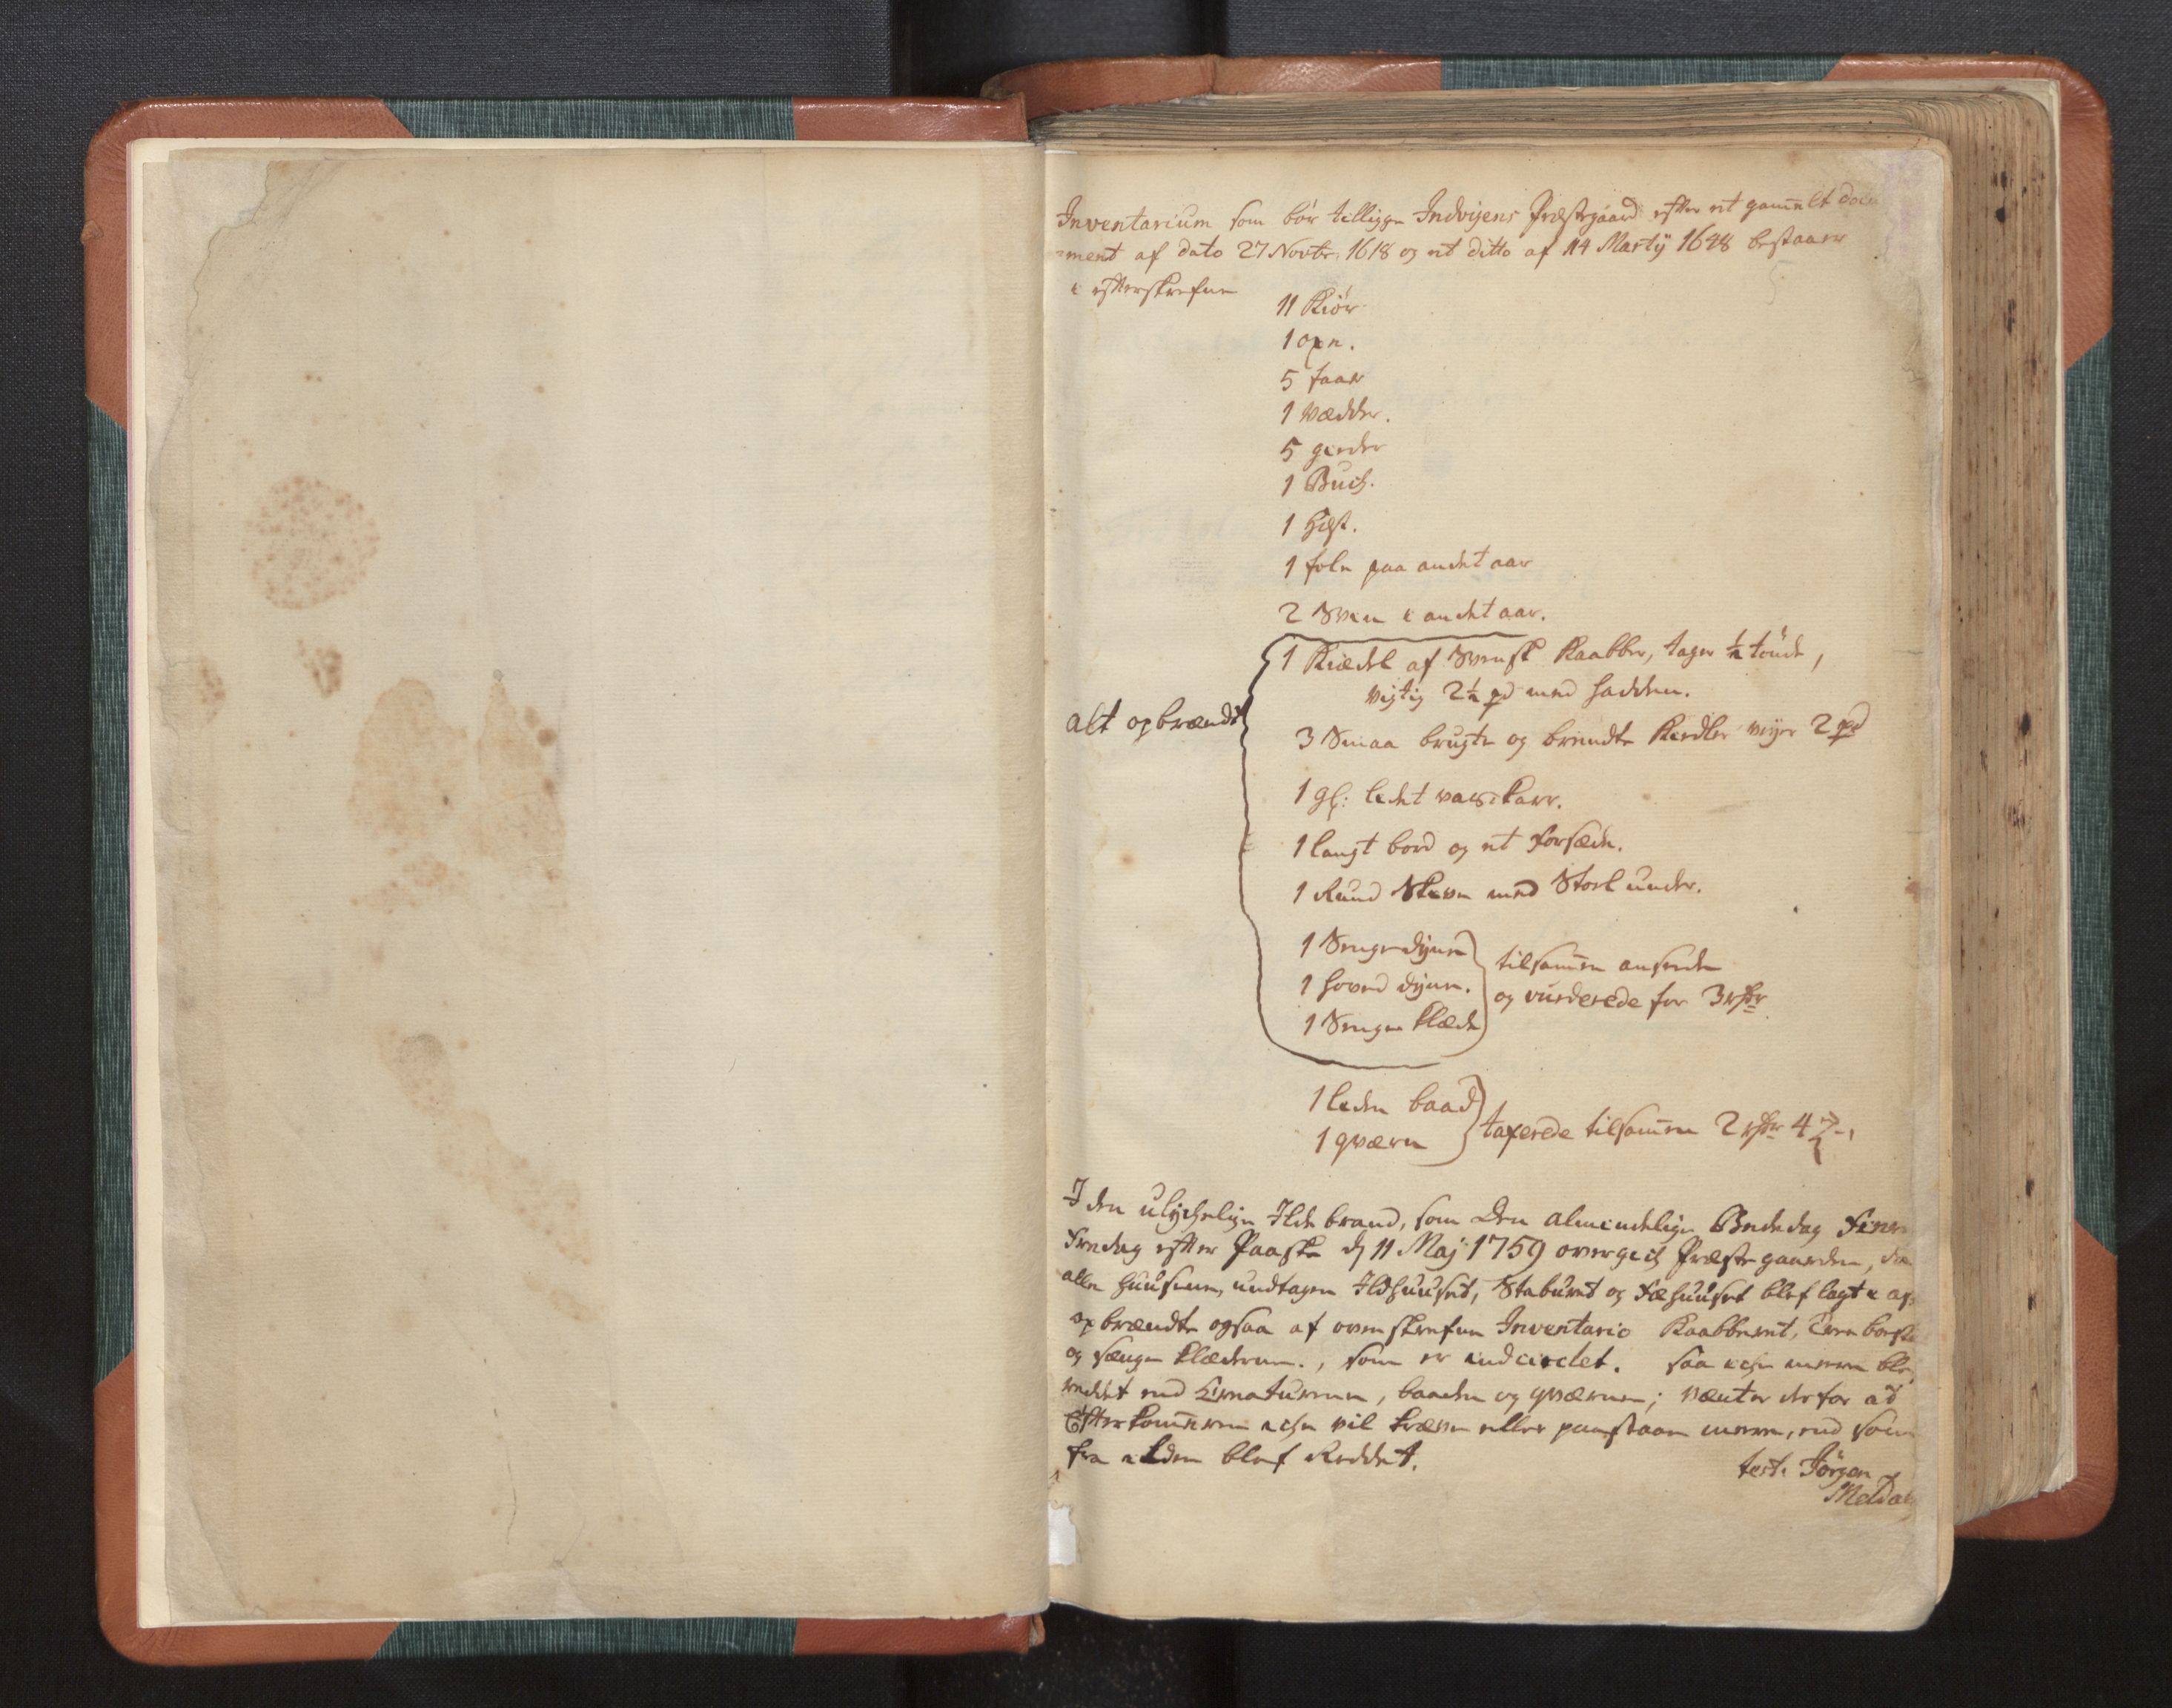 Inventarium som bör tilligge Indvigens Præstegaard efter et gamelt docu
=ment af dato 27 Novbr: 1618 og et ditto af 14 Martij 1648 bestaaer
i efterskrefne
11 Kiör
1 oxn.
5 faar
1 Vædder.
5 geeder
1 Buch.
1 Hæst.
1 fole paa andet aar
2 Sviin i andet aar.
1 Kiædel af Svensk Kaabber, tager ½ tönde,
vigtig 2½ pd med hadden.
alt opbrændt
3 Smaa brugte og brændte Kiedler veyer 2 pd
1 gl: lidet kar.
1 langt bord og et Forsæde.
1 Rund Skive med Stoel under.
1 Senge dyne
1 hoved dyne.
1 Senge klæde
tilsamen ansede
og vurderede for 3 rdr
1 liden baad
1 qværn
taxerede tilsamen 2 rdr 4
I den ulychelige Ildebrand, som den almindelige Bededag fierde
Fredag efter Paaske d 11 Maj 1759 overgick Præstegaarden, da
alle huusene, undtagen Ildhuuset, Staburet og Fæhuuset blef lagt i aske
opbrændte ogsaa af ovenskrefne Inventario Kaabberet,
og sænge klæderne., som er indcirclet. saa iche meere blef
reddet end Creaturerne, baaden og qværnen; venter derfor at
Efterkomeren iche vil kræve eller paastaae meere, end som
fra ilden blef Reddet.
test: Jörgen
Meldal